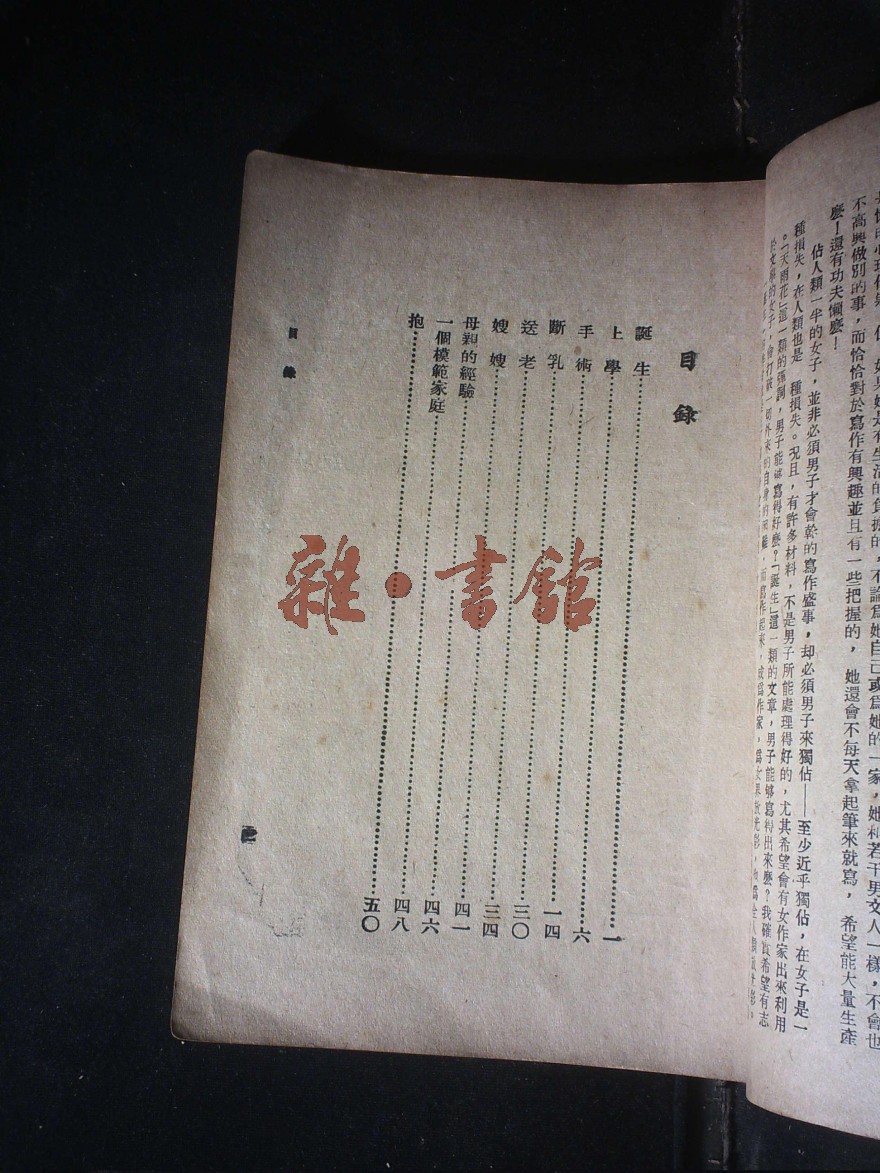 不高興做別的事，而恰恰對於寫作有興趣並且有一些把握的，她還會不每天拿起筆來就寫，希望能大量生產
麼！還有功夫懶麼！
佔人類一半的女子，並非必須男子才會幹的寫作盛事，却必須男子來獨佔——至少近乎獨佔，在女子是一
種損失，在人類也是一種損失。況且，有許多材料，不是男子所能處理得好的，尤其希望會有女作家出來利用
。「天雨花」這一類的彈詞，男子能够寫得好麼？「誕生」這一類的文章，男子能够寫得出來麼？我確實希望有志
於文學的女子，會打破一切外來的自身的困難，而寫作起來，成爲作家，
目錄
誕生…………一
上學…………六
手術…………一四
斷乳…………三〇
送老…………三四
嫂嫂…………四一
母親的經驗…………四六
一個模範家庭…………四八
抱…………五〇
目錄
雜·書館